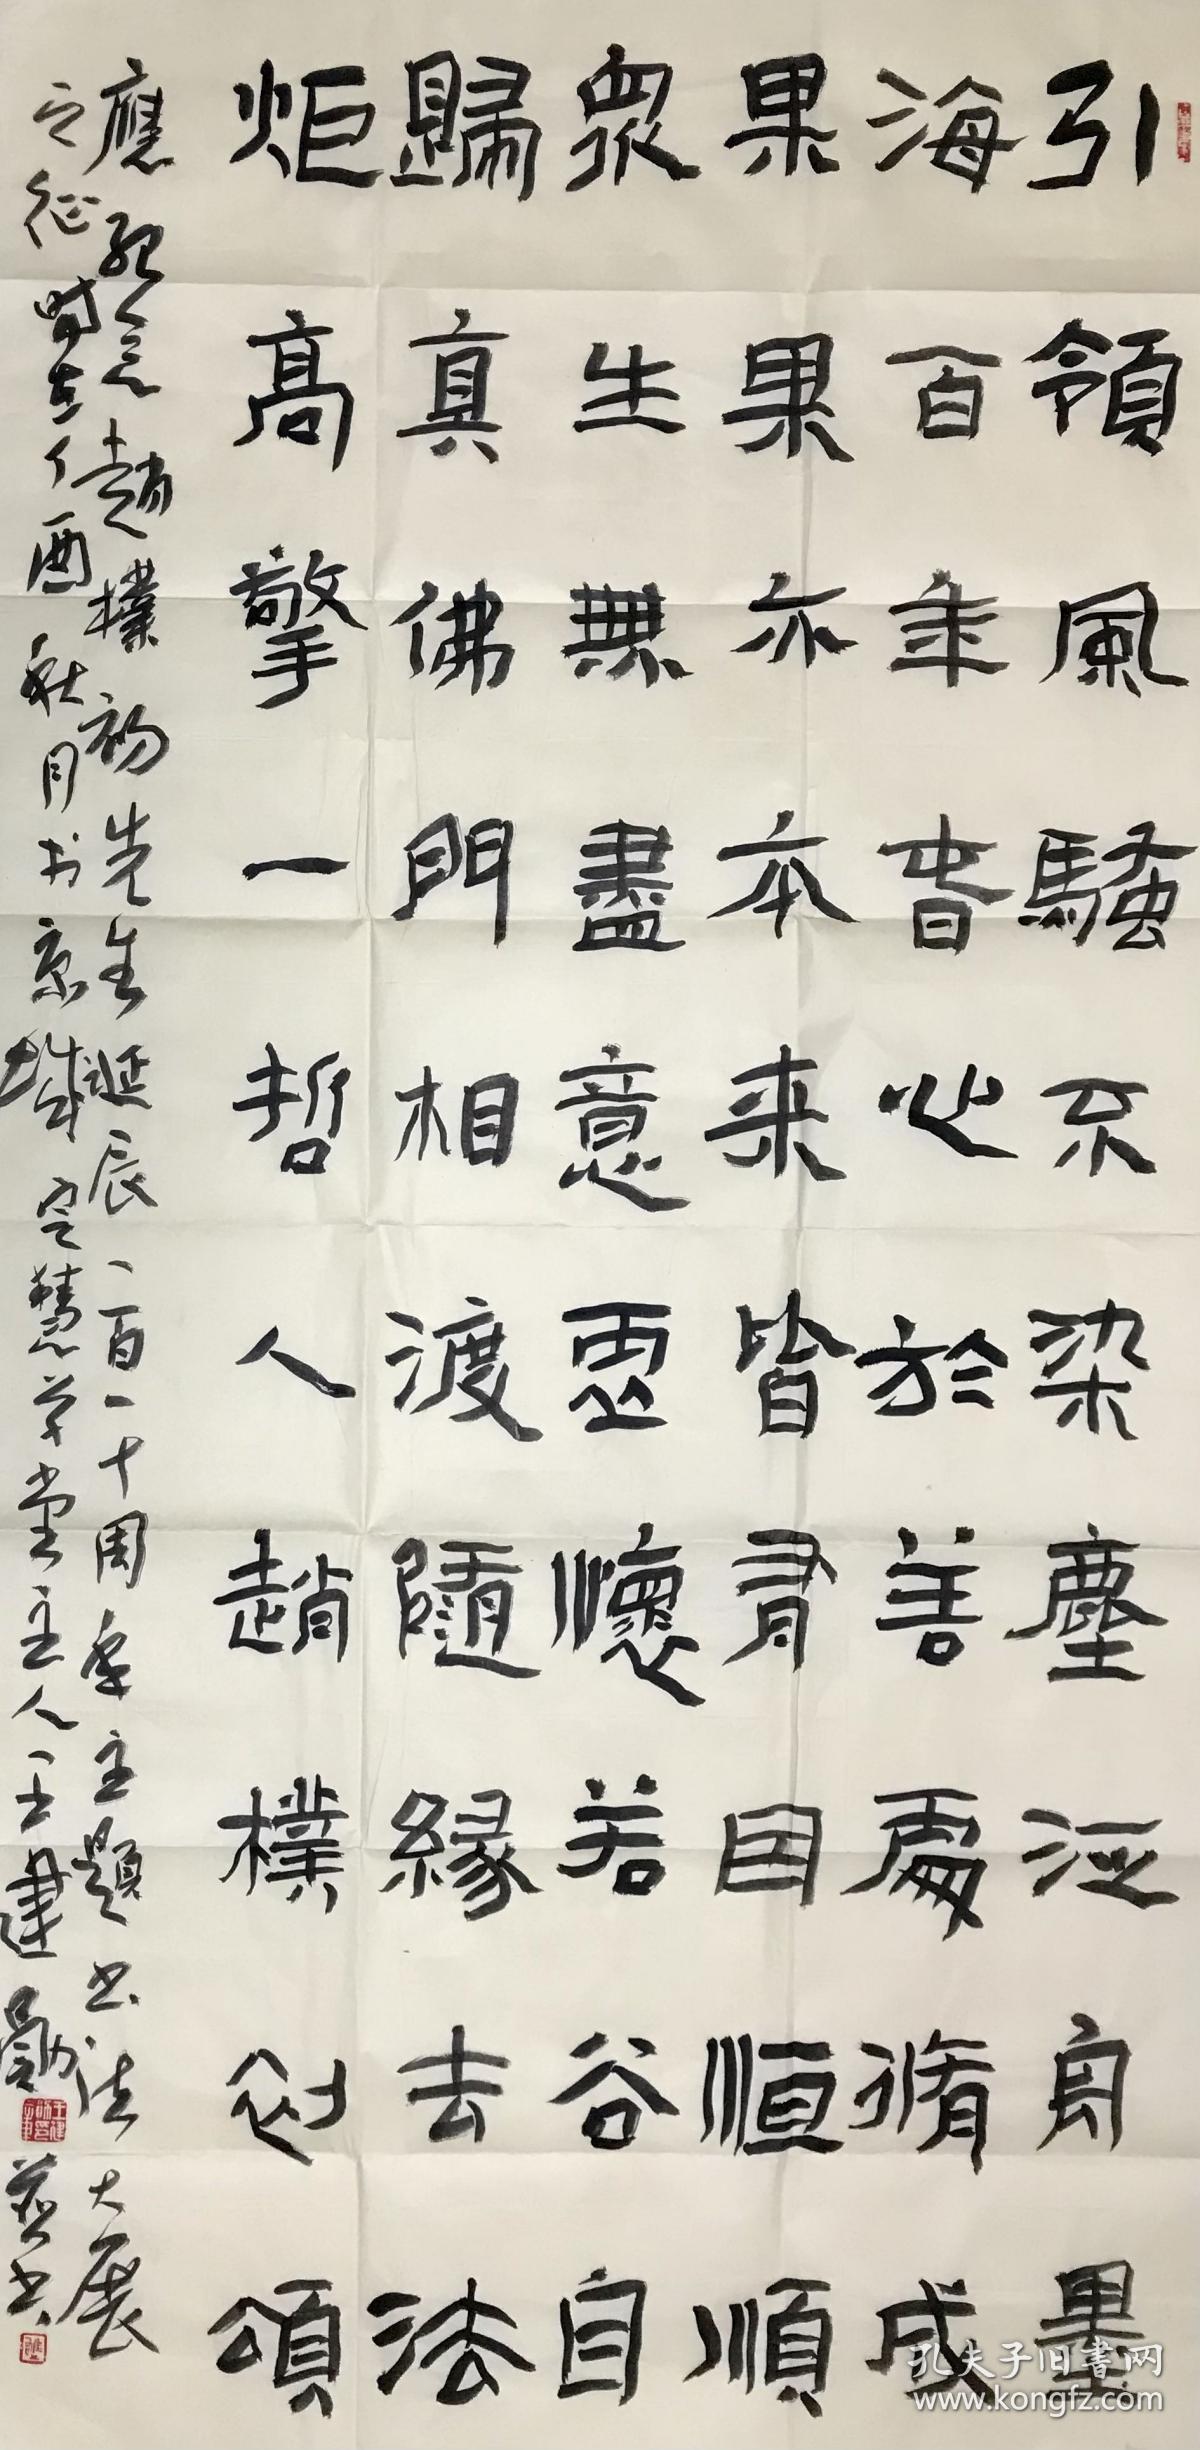 引領風騷不染塵泛舟墨
海百年春心於善處脩成
果果亦本来皆有因順恒順
眾生無盡意虛懷若谷自
歸真佛門相渡隨緣去法
炬高擎一哲人趙樸初頌
應纪念趙樸初先生延辰一百一十周年主题书法大展
之征时在丁酉秋月书京城定慧草堂主人王建勛并书
孔夫子旧書网
www.kongfz.com